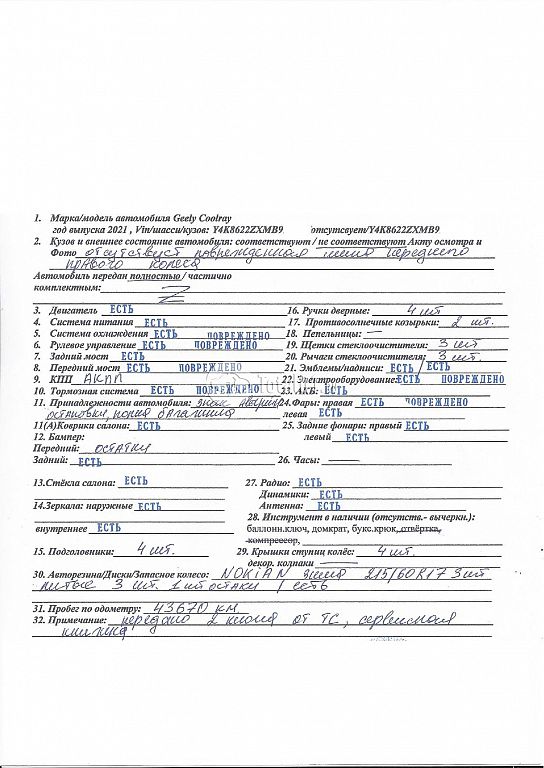 1. Марка/модель автомобиля Geely Coolray
год выпуска 2021 , Vin/шасси/кузов: Y4K8622ZXMB9 отсутсвует/Y4K8622ZXMB9
2. Кузов и внешнее состояние автомобиля: соответствуют / не соответствуют Акту осмотра и
Фото отсутствует поврежденная шина переднего
правого колеса
Автомобиль передан полностью / частично
комплектным: Z
3. Двигатель ЕСТЬ 16. Ручки дверные: 4 шт
4. Система питания ЕСТЬ 17. Противосолнечные козырьки: 2 шт.
5. Система охлаждения ЕСТЬ ПОВРЕЖДЕНО 18. Пепельницы: —
6. Рулевое управление ЕСТЬ ПОВРЕЖДЕНО 19. Щетки стеклоочистителя: 3 шт
7. Задний мост ЕСТЬ 20. Рычаги стеклоочистителя: 3 шт.
8. Передний мост ЕСТЬ ПОВРЕЖДЕНО 21. Эмблемы/надписи: ЕСТЬ / ЕСТЬ
9. КПП АКПП 22. Электрооборудование: ЕСТЬ ПОВРЕЖДЕНО
10. Тормозная система ЕСТЬ ПОВРЕЖДЕНО 23. АКБ: ЕСТЬ
11. Принадлежености автомобиля: знак аварийн 24.Фары: правая ЕСТЬ ПОВРЕЖДЕНО
остановки, полка багажника левая ЕСТЬ
11(А)Коврики салона: ЕСТЬ 25. Задние фонари: правый ЕСТЬ
12. Бампер: левый ЕСТЬ
Передний: остатки
Задний: ЕСТЬ 26. Часы: —
13.Стёкла салона: ЕСТЬ 27. Радио: ЕСТЬ
Динамики: ЕСТЬ
14.Зеркала: наружные ЕСТЬ Антенна: ЕСТЬ
28. Инструмент в наличии (отсутств.- вычеркн.):
внутреннее ЕСТЬ баллонн.ключ, домкрат, букс.крюк, отвёртка,
компрессор,
15. Подголовники: 4 шт. 29. Крышки ступиц колёс: 4 шт.
декор. колпаки —
30. Авторезина/Диски/Запасное колесо: NOKIAN зима 215/60R17 3 шт
литые 3 шт. 1 шт остатки / есть
31. Пробег по одометру: 43670 км.
32. Примечание: передано 2 ключа от ТС, сервисная
книжка